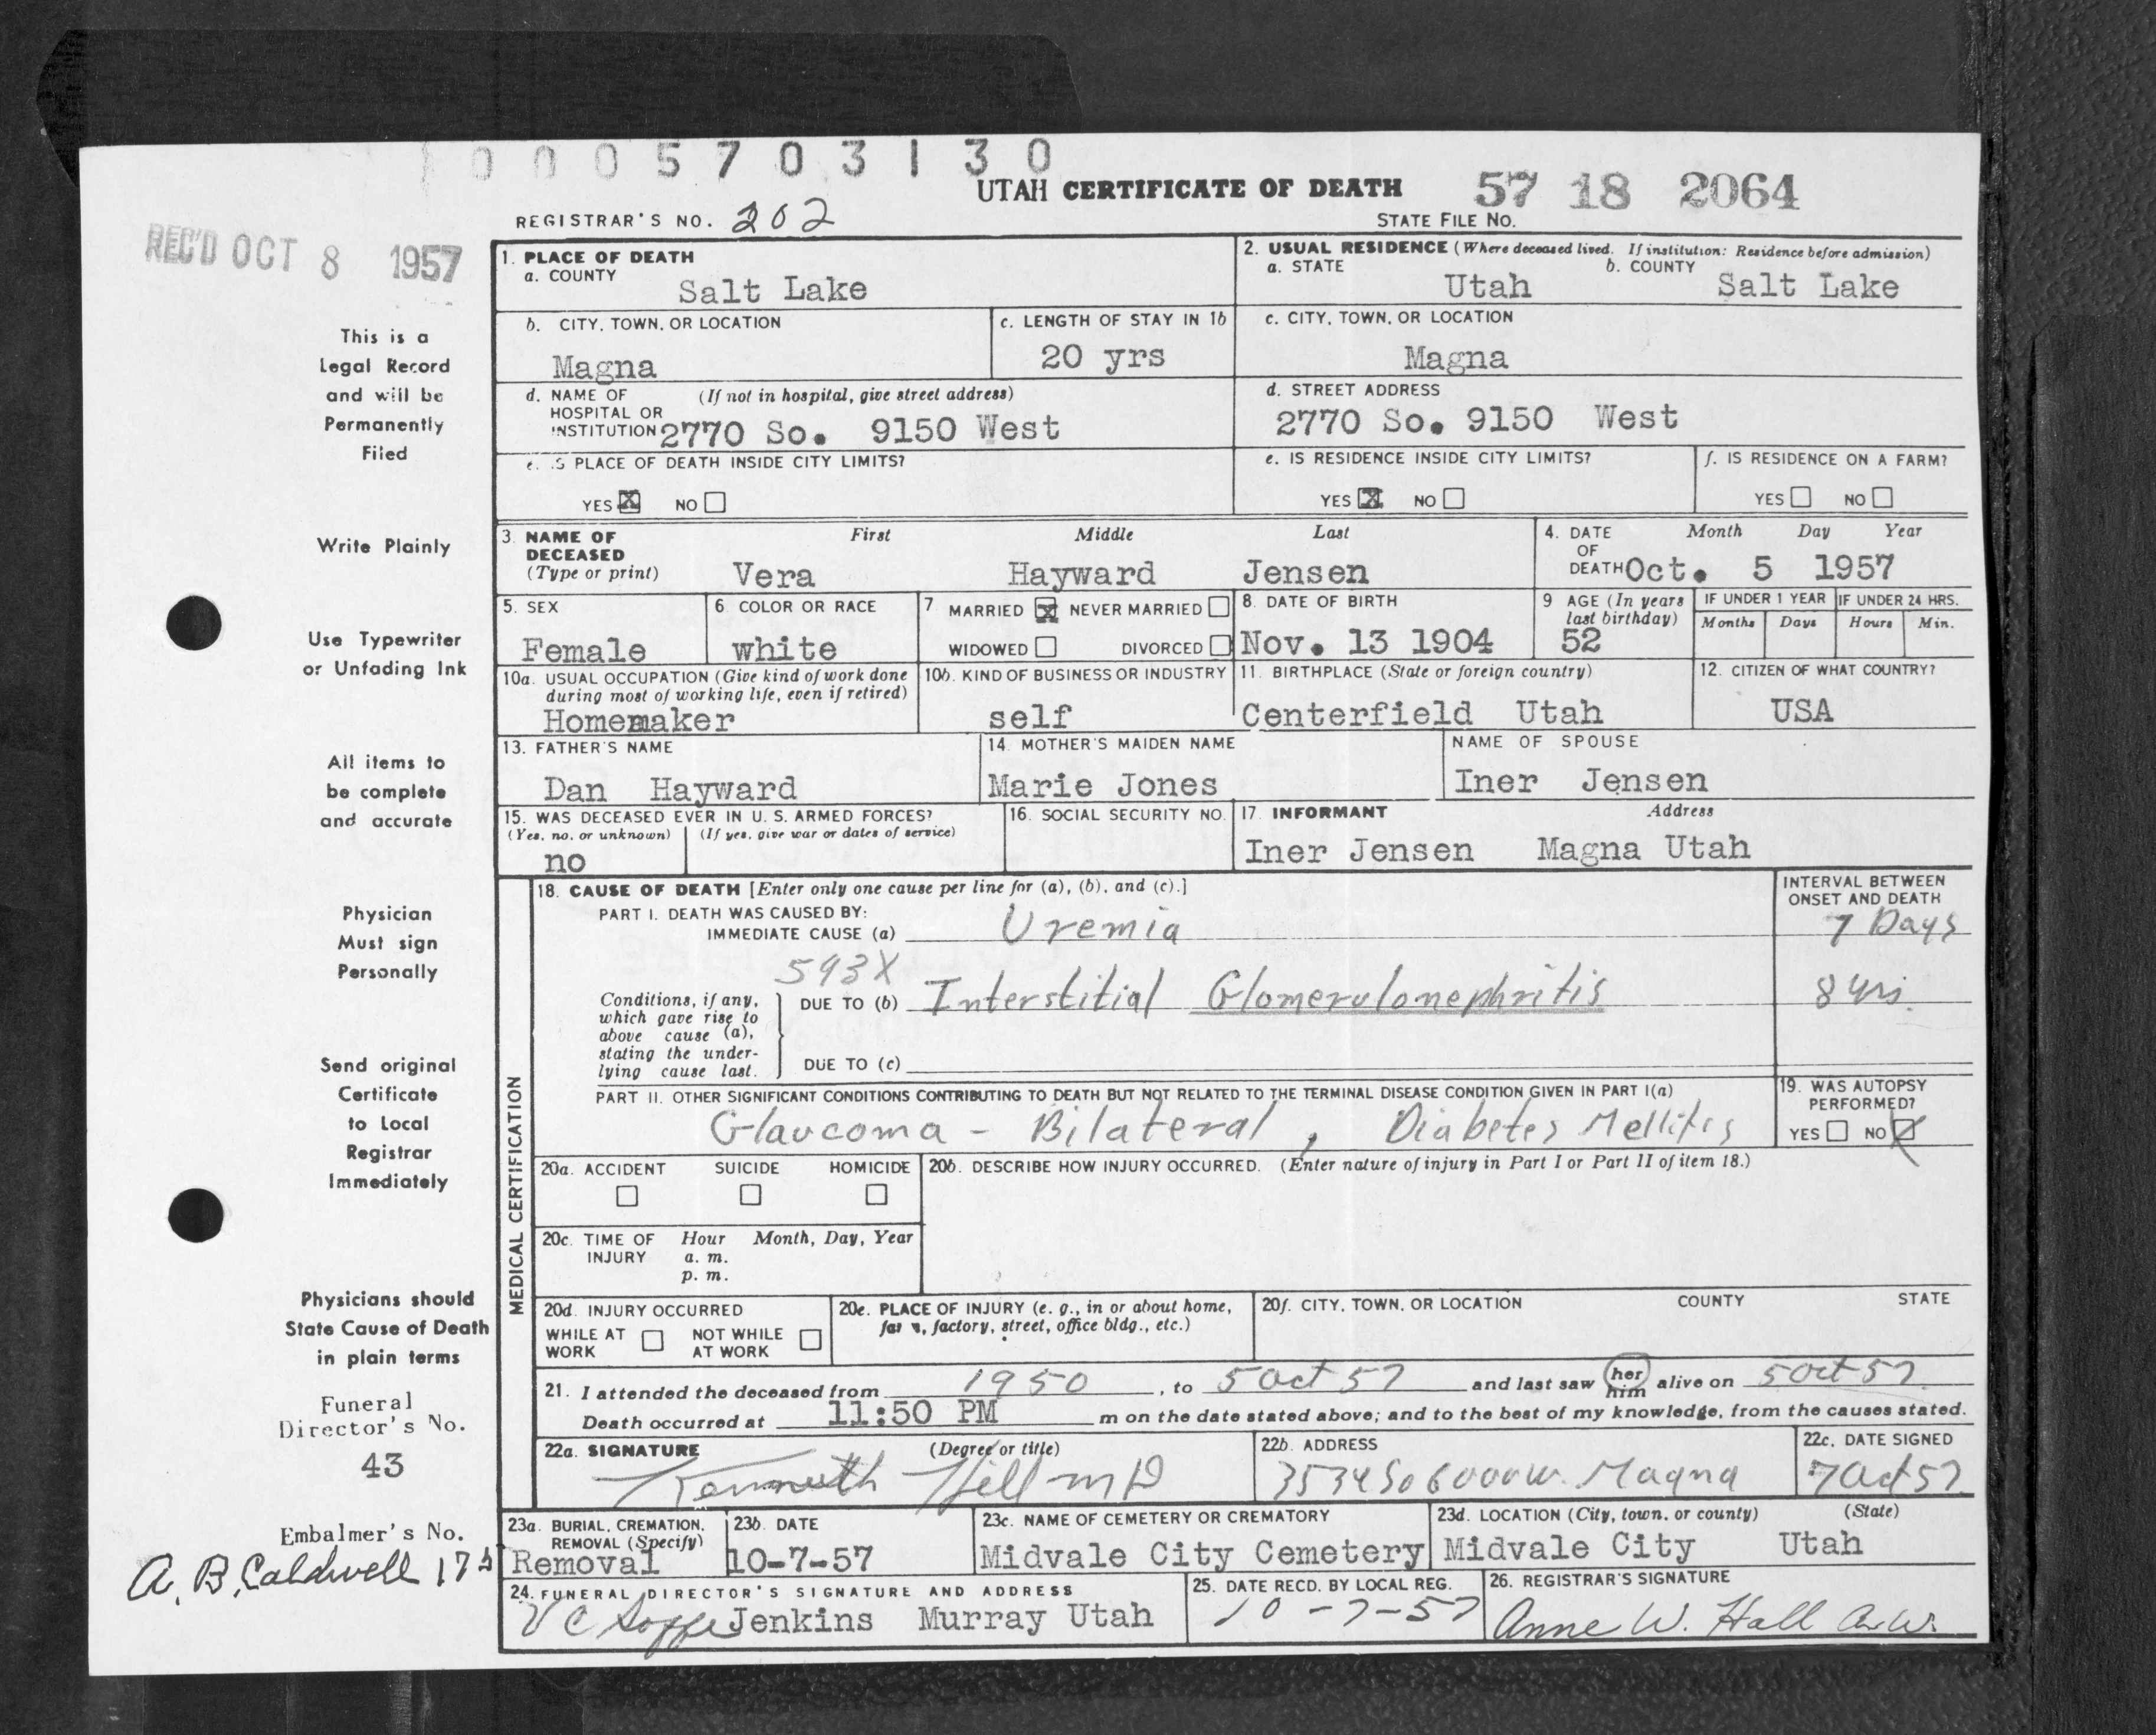 0005703130
UTAH CERTIFICATE OF DEATH 57 18 2064
REGISTRAR'S NO. 202 STATE FILE NO.
REC'D OCT 8 1957
This is a
Legal Record
and will be
Permanently
Filed
Write Plainly
Use Typewriter
or Unfading Ink
All items to
be complete
and accurate
Physician
Must sign
Personally
Send original
Certificate
to Local
Registrar
Immediately
Physicians should
State Cause of Death
in plain terms
Funeral
Director's No.
43
Embalmer's No.
A. B. Caldwell
1. PLACE OF DEATH
a. COUNTY
Salt Lake
2. USUAL RESIDENCE (Where deceased lived. If institution: Residence before admission)
a. STATE b. COUNTY
Utah Salt Lake
b. CITY, TOWN, OR LOCATION
Magna
c. LENGTH OF STAY IN 1b
20 yrs
c. CITY, TOWN, OR LOCATION
Magna
d. NAME OF (If not in hospital, give street address)
HOSPITAL OR
INSTITUTION 2770 So. 9150 West
d. STREET ADDRESS
2770 So. 9150 West
e. IS PLACE OF DEATH INSIDE CITY LIMITS?
YES X NO
e. IS RESIDENCE INSIDE CITY LIMITS?
YES X NO
f. IS RESIDENCE ON A FARM?
YES NO
3. NAME OF First Middle Last
DECEASED
(Type or print) Vera Hayward Jensen
4. DATE Month Day Year
OF
DEATH Oct. 5 1957
5. SEX
Female
6. COLOR OR RACE
white
7. MARRIED X NEVER MARRIED
WIDOWED DIVORCED
8. DATE OF BIRTH
Nov. 13 1904
9 AGE (In years
last birthday)
52
IF UNDER 1 YEAR IF UNDER 24 HRS.
Months Days Hours Min.
10a. USUAL OCCUPATION (Give kind of work done
during most of working life, even if retired)
Homemaker
10b. KIND OF BUSINESS OR INDUSTRY
self
11. BIRTHPLACE (State or foreign country)
Centerfield Utah
12. CITIZEN OF WHAT COUNTRY?
USA
13. FATHER'S NAME
Dan Hayward
14. MOTHER'S MAIDEN NAME
Marie Jones
NAME OF SPOUSE
Iner Jensen
15. WAS DECEASED EVER IN U. S. ARMED FORCES?
(Yes, no, or unknown) (If yes, give war or dates of service)
no
16. SOCIAL SECURITY NO.
17. INFORMANT Address
Iner Jensen Magna Utah
MEDICAL CERTIFICATION
18. CAUSE OF DEATH [Enter only one cause per line for (a), (b), and (c).]
INTERVAL BETWEEN
ONSET AND DEATH
PART I. DEATH WAS CAUSED BY:
IMMEDIATE CAUSE (a) Uremia 7 Days
593X
Conditions, if any,
which gave rise to
above cause (a),
stating the under-
lying cause last.
DUE TO (b) Interstitial Glomerulonephritis 8 yrs.
DUE TO (c)
PART II. OTHER SIGNIFICANT CONDITIONS CONTRIBUTING TO DEATH BUT NOT RELATED TO THE TERMINAL DISEASE CONDITION GIVEN IN PART I(a)
Glaucoma - Bilateral, Diabetes Mellitis
19. WAS AUTOPSY
PERFORMED?
YES NO X
20a. ACCIDENT SUICIDE HOMICIDE
20b. DESCRIBE HOW INJURY OCCURRED. (Enter nature of injury in Part I or Part II of item 18.)
20c. TIME OF Hour Month, Day, Year
INJURY a. m.
p. m.
20d. INJURY OCCURRED
WHILE AT NOT WHILE
WORK AT WORK
20e. PLACE OF INJURY (e. g., in or about home,
farm, factory, street, office bldg., etc.)
20f. CITY, TOWN, OR LOCATION COUNTY STATE
21. I attended the deceased from 1950, to 5 Oct 57 and last saw her him alive on 5 Oct 57.
Death occurred at 11:50 PM m on the date stated above; and to the best of my knowledge, from the causes stated.
22a. SIGNATURE (Degree or title)
Kenneth Hill MD
22b. ADDRESS
3534 So 6000 W. Magna
22c. DATE SIGNED
7 Oct 57
23a. BURIAL, CREMATION,
REMOVAL (Specify)
Removal
23b. DATE
10-7-57
23c. NAME OF CEMETERY OR CREMATORY
Midvale City Cemetery
23d. LOCATION (City, town, or county) (State)
Midvale City Utah
24. FUNERAL DIRECTOR'S SIGNATURE AND ADDRESS
Jenkins Murray Utah
25. DATE RECD. BY LOCAL REG.
10-7-57
26. REGISTRAR'S SIGNATURE
Anne W. Hall